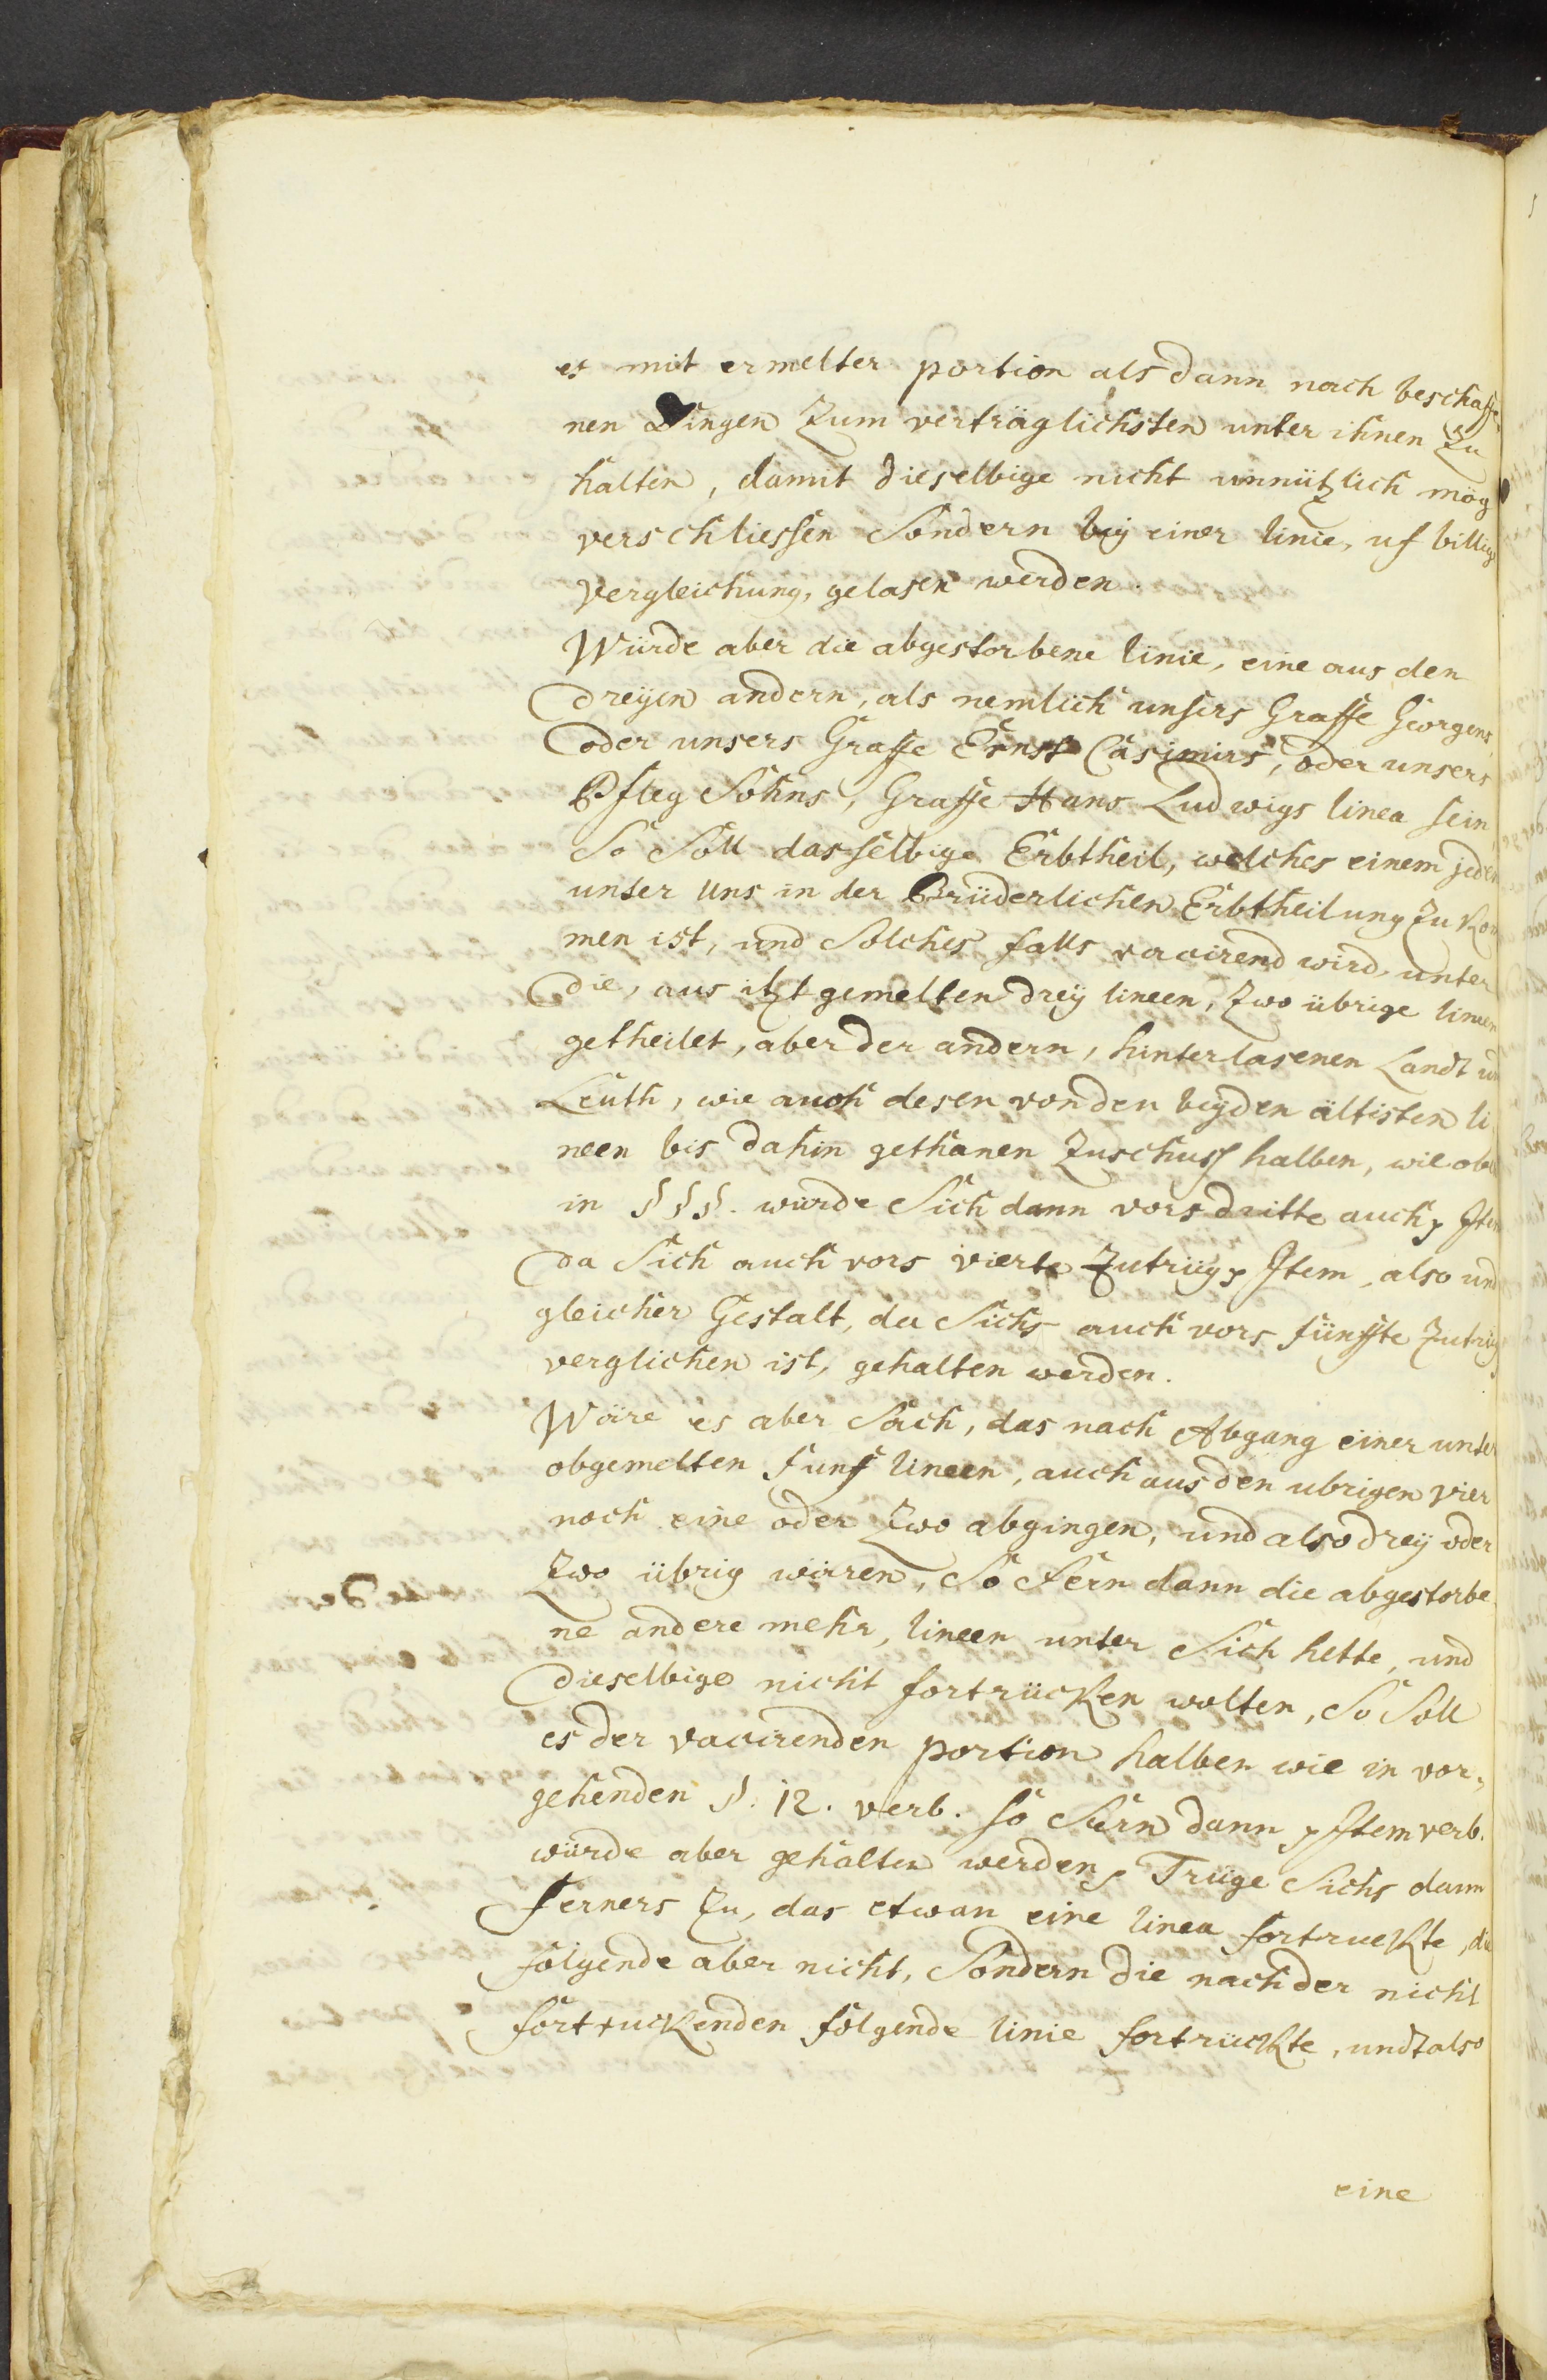 es mit ermelter portion als dann nach beschaffe
nen Dingen Zum verträglichsten unter ihnen Zu
halten, damit dieselbige nicht unnützlich mög
verschliessen Sondern beÿ einer linie, uf billige
Vergleichung, gelasen werden.
Würde aber die abgestorbene linie, eine aus den
dreÿen andern, als nemlich unsers Graffe Georgens
oder unsers Graffe Ernst Casimirs, oder unsers
Pfleg Sohns, Graffe Hans Ludwigs linea sein
So Soll dasselbige Erbtheil, welches einem jeden
unter Uns in der Brüderlichen Erbtheilung Zu kom
men ist, und Solches falls vacirend wird, unter
die, aus itzt gemelten dreÿ lineen, Zwo übrige lineen
getheilet, aber der andern, hinterlasenen Landt und
Leuth, wie auch desen von den beÿden ältisten li
neen bis dahin gethanen Zuschuss halben, wie oben
in §§§. wurde Sich dann vors dritte auch Item
da Sich auch vors vierte Zutrüg Item, also und
gleicher Gestalt, da Sichs auch vors fünffte Zutrüg
verglichen ist, gehalten werden.
Wäre es aber Sach, das nach Abgang einer unter
obgemelten funf lineen, auch aus den ubrigen vier
noch eine oder Zwo abgingen, und also dreÿ oder
Zwo übrig wären, So Fern dann die abgestorbe
ne andere mehr, lineen unter Sich hette, und
dieselbige nicht fortrücken wolten, So Soll
es der vacirenden portion halben wie in vor,
gehenden §. 12. verb. So Fern dann Item verb.
würde aber gehalten werden Trüge Sichs dann
ferners Zu, das etwan eine linea fortruckte, die
folgende aber nicht, Sondern die nach der nicht
fortruckenden folgende linie fortrückte, undt also
eine